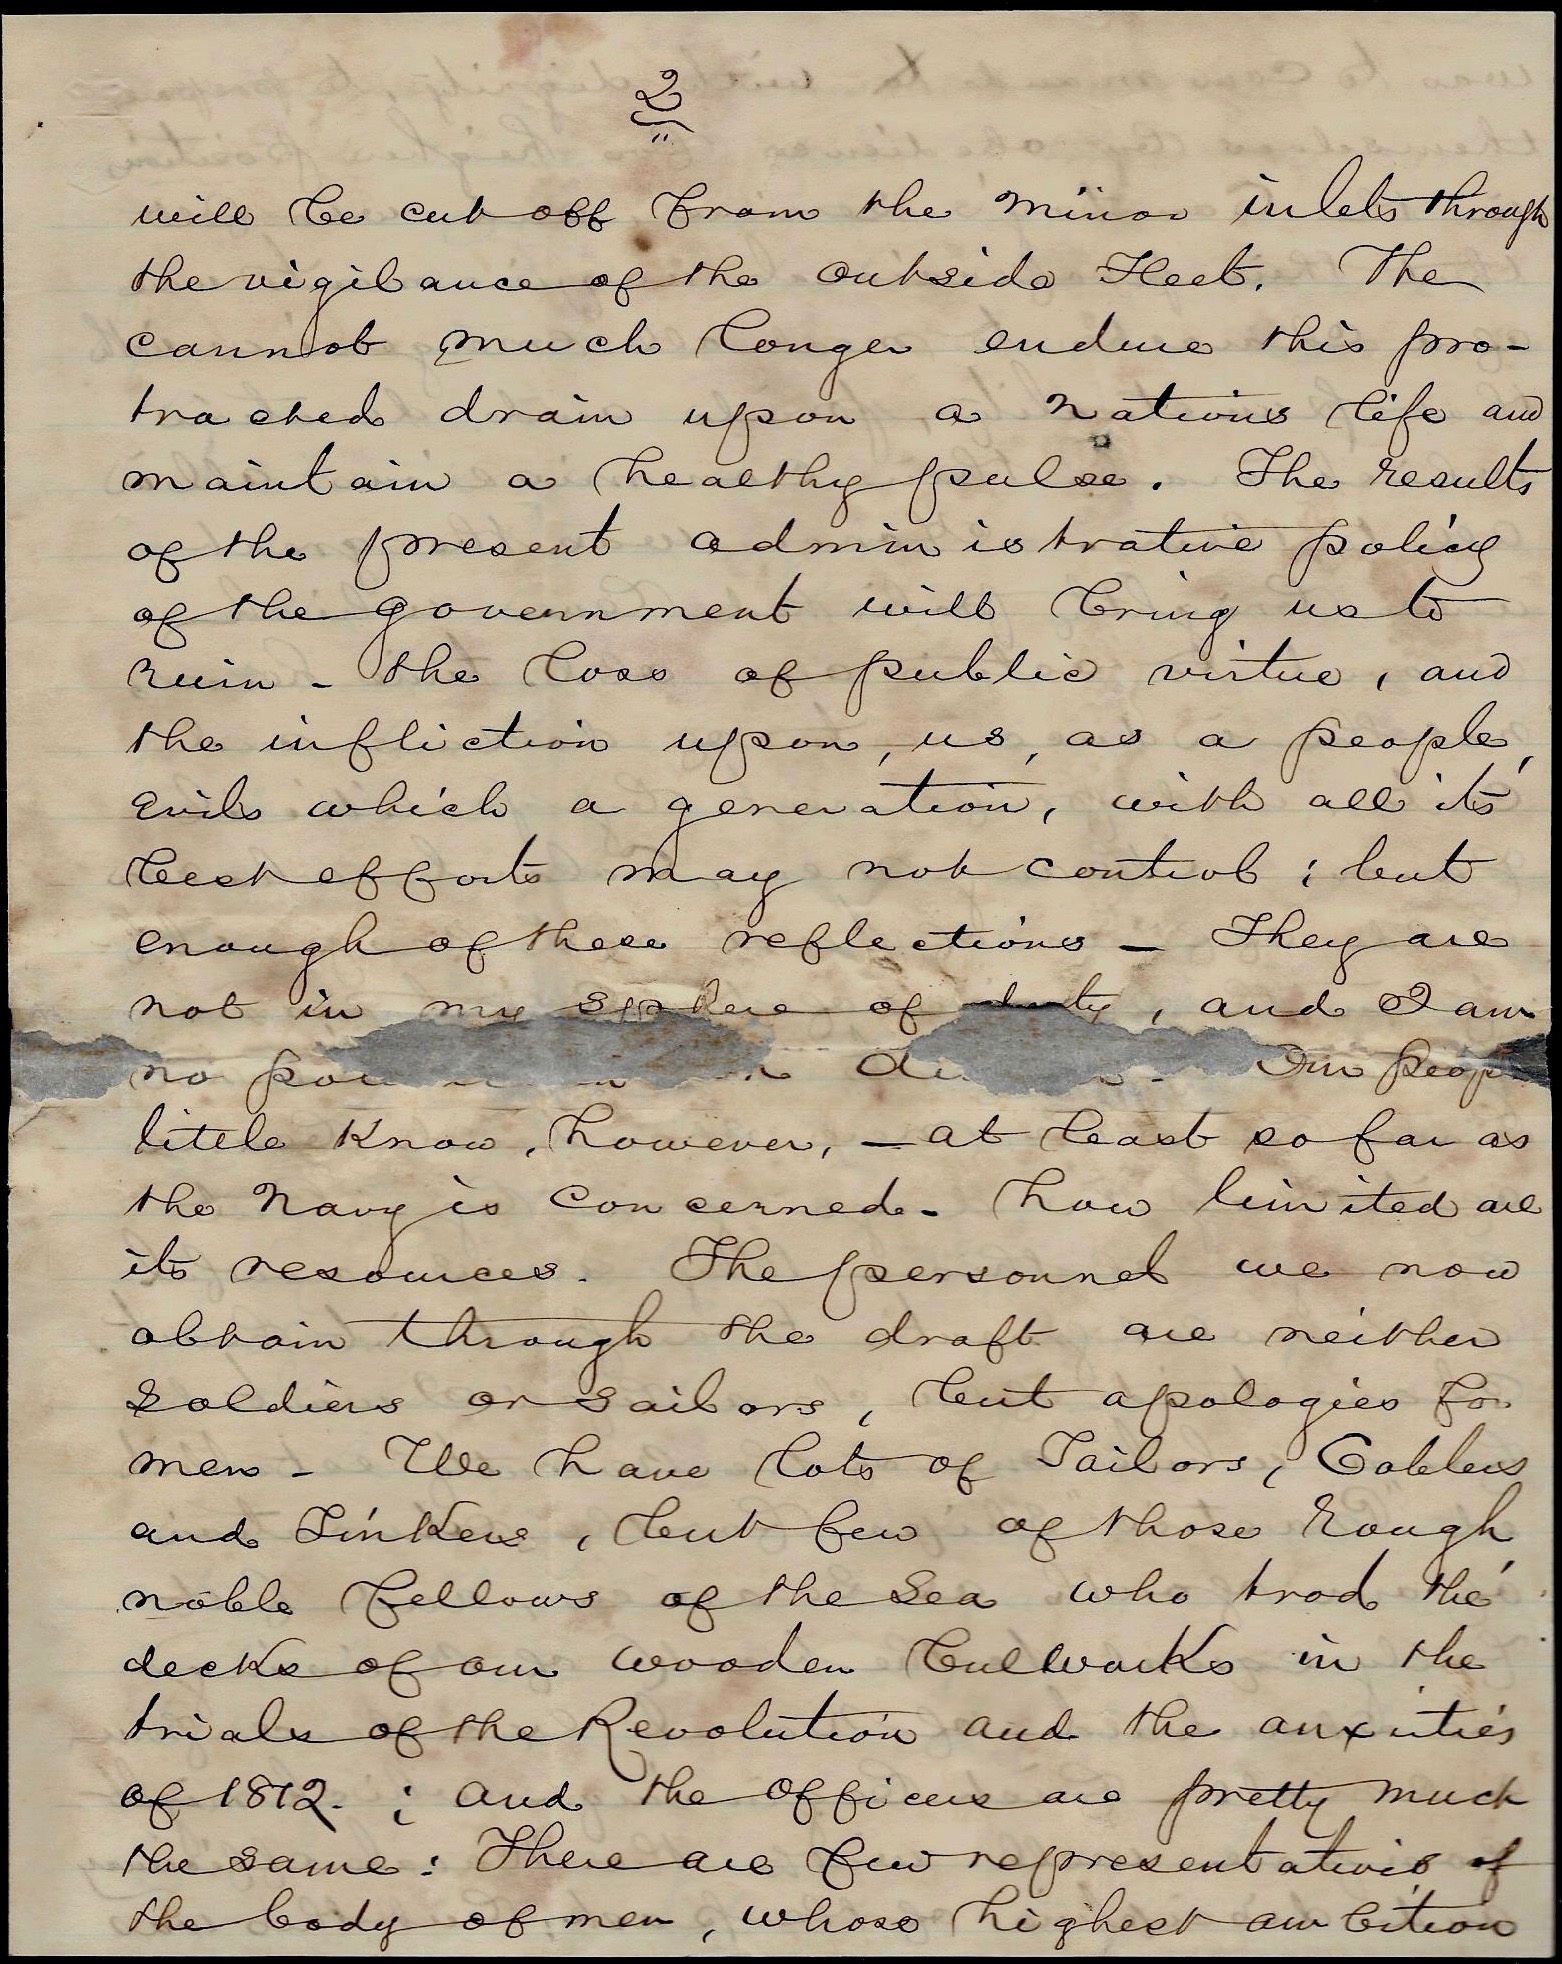 2
will be cut off from the minor inlets through
the vigilance of the outside Fleet. The
cannot much longer endure this pro-
tracted drain upon a Nations life and
maintain a healthy pulse. The results
of the present administrative policy
of the government will bring us to
ruin - the loss of public virtue, and
the infliction upon, us, as a people,
evils which a generation, with all its
best efforts may not control; but
enough of these reflections - They are
not in my sphere of duty, and I am
no Our
little know, however, - at least so far as
the Navy is concerned - how limited are
its resources. The personnel we now
obtain through the draft are neither
soldiers or sailors, but apologies for
men - We have lots of Tailors, Coblers
and Tinkers, but few of those rough
noble fellows of the sea who trod the
decks of our wooden bulwarks in the
trials of the Revolution and the anxieties
of 1812. ; and the officers are pretty much
the same: There are few representatives of
the body of men, whose highest ambition